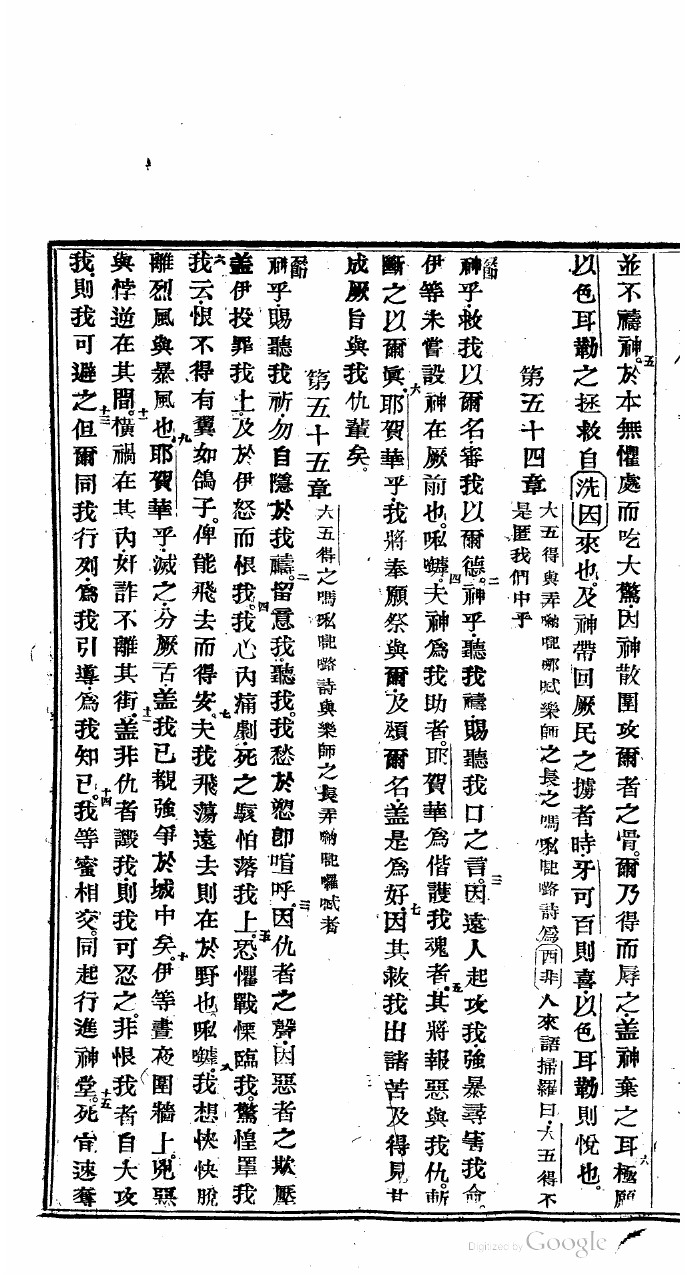 並不禱神五於本無懼處而吃大驚因神散圍攻爾者之骨爾乃得而辱之蓋神棄之耳六極願
以色耳勒之拯救自洗因來也及神帶回厥民之擄者時牙可百則喜以色耳勒則悅也
第五十四章 大五得與弄 樂師之長之嗎 詩為西非人來語掃羅曰大五得不
是匿我們中乎
一節神乎救我以爾名審我以爾德二神乎聽我禱賜聽我口之言三因遠人起攻我強暴尋害我命
伊等未嘗設神在厥前也㖠嚹四夫神為我助者耶賀華為偕護我魂者五其將報惡與我仇斬
斷之以爾真六耶賀華乎我將奉願祭與爾及頌爾名蓋是為好七因其救我出諸苦及得見其
成厥旨與我仇輩矣
第五十五章 大五得之嗎 詩與樂師之長弄 者
一節神乎賜聽我祈勿自隱於我禱二留意我聽我我愁於愬即喧呼三因仇者之聲因惡者之欺壓
蓋伊投罪我上及於伊怒而恨我四我心內痛劇死之駭怕落我上五恐懼戰慄臨我八驚惶罩我
六我云恨不得有翼如鴿子俾能飛去而得安七夫我飛蕩遠去則在於野也㖠嚹我想快快脫
離烈風與暴風也九耶賀華乎滅之分厥舌蓋我已覩強爭於城中矣十伊等晝夜圍牆上兇惡
與悖逆在其間十一橫禍在其內奸詐不離其街十二蓋非仇者譭我則我可忍之非恨我者自大攻
我則我可避之十三但爾同我行列為我引導為我知已十四我等蜜相交同起行進神堂十五死宜速奪
Digitized by Google